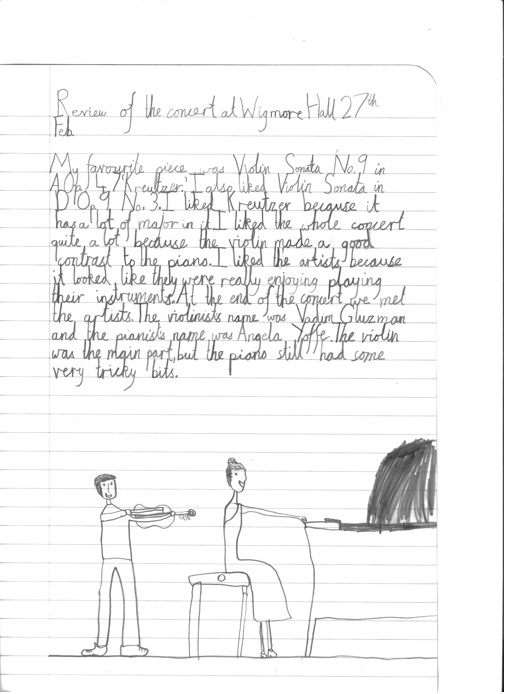 Review of the concert at Wigmore Hall 27th
Feb
My favourite piece was Violin Sonata No. 9 in
A Op. 47 'Kreutzer'. I also liked Violin Sonata in
D Op. 9 No. 3. I liked Kreutzer because it
has a lot of major in it. I liked the whole concert
quite a lot, because the violin made a good
contrast to the piano. I liked the artists because
it looked like they were really enjoying playing
their instruments. At the end of the concert we met
the artists. The violinists name was Vadim Gluzman
and the pianists name was Angela Yoffe. The violin
was the main part, but the piano still had some
very tricky bits.